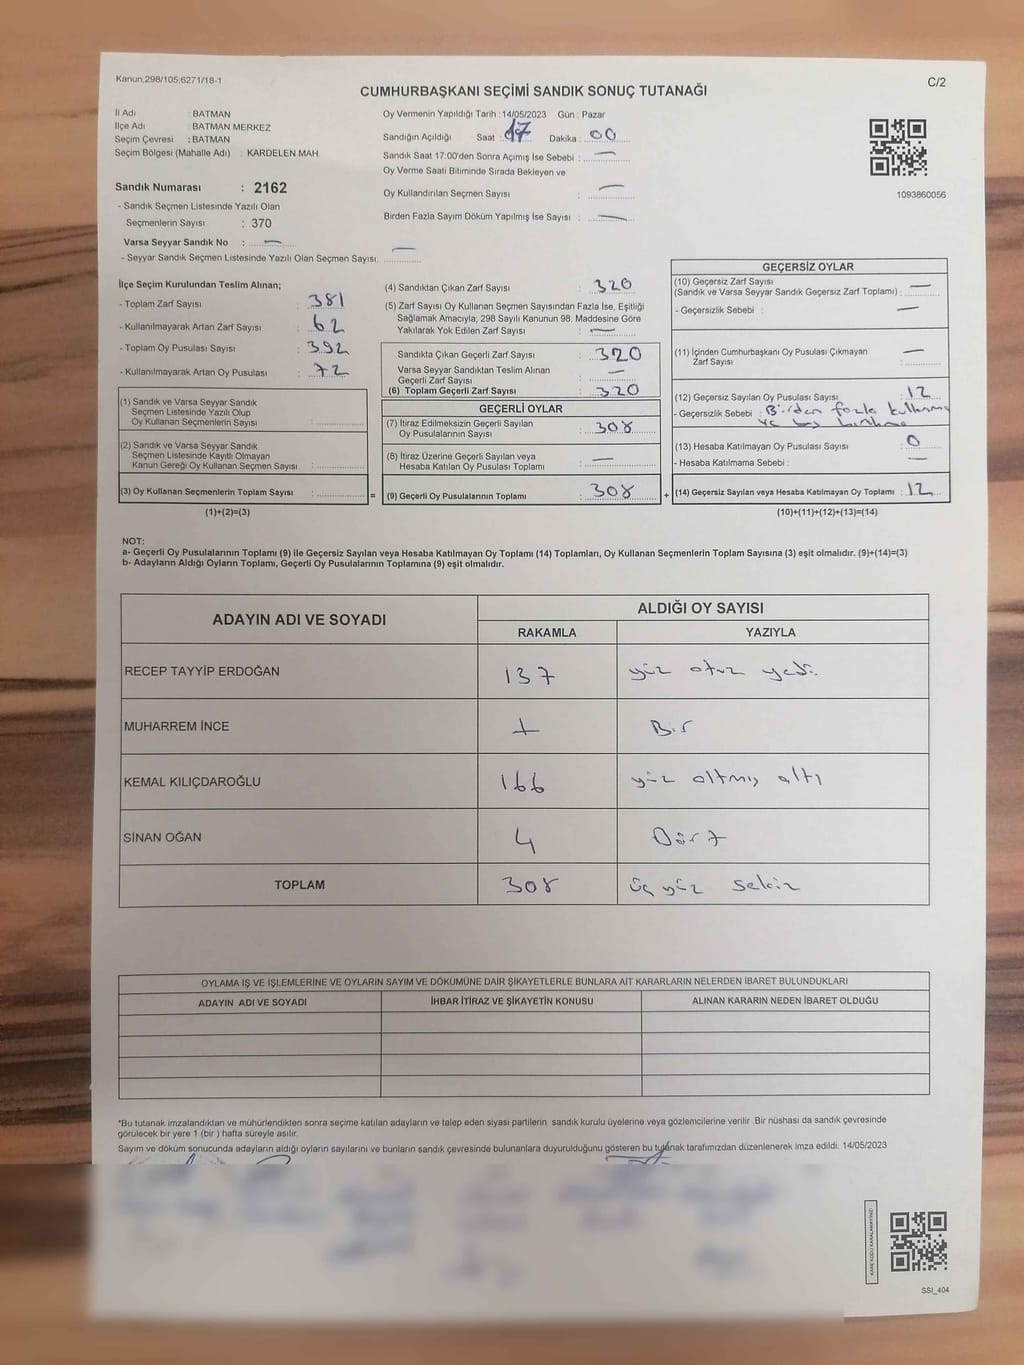 Kanun;298/105;6271/18-1
C/2
CUMHURBAŞKANI SEÇİMİ SANDIK SONUÇ TUTANAĞI
İl Adı : BATMAN
İlçe Adı : BATMAN MERKEZ
Seçim Çevresi : BATMAN
Seçim Bölgesi (Mahalle Adı) : KARDELEN MAH.
Sandık Numarası : 2162
- Sandık Seçmen Listesinde Yazılı Olan
Seçmenlerin Sayısı : 370
Varsa Seyyar Sandık No : —
- Seyyar Sandık Seçmen Listesinde Yazılı Olan Seçmen Sayısı: —
Oy Vermenin Yapıldığı Tarih : 14/05/2023 Gün : Pazar
Sandığın Açıldığı Saat : 17 Dakika : 00
Sandık Saat 17:00'den Sonra Açımış İse Sebebi : —
Oy Verme Saati Bitiminde Sırada Bekleyen ve
Oy Kullandırılan Seçmen Sayısı : —
Birden Fazla Sayım Döküm Yapılmış İse Sayısı : —
1093860056
İlçe Seçim Kurulundan Teslim Alınan;
- Toplam Zarf Sayısı : 381
- Kullanılmayarak Artan Zarf Sayısı : 62
- Toplam Oy Pusulası Sayısı : 392
- Kullanılmayarak Artan Oy Pusulası : 72
(1) Sandık ve Varsa Seyyar Sandık
Seçmen Listesinde Yazılı Olup
Oy Kullanan Seçmenlerin Sayısı :
(2) Sandık ve Varsa Seyyar Sandık
Seçmen Listesinde Kayıtlı Olmayan
Kanun Gereği Oy Kullanan Seçmen Sayısı :
(3) Oy Kullanan Seçmenlerin Toplam Sayısı :
(1)+(2)=(3)
(4) Sandıktan Çıkan Zarf Sayısı : 320
(5) Zarf Sayısı Oy Kullanan Seçmen Sayısından Fazla İse, Eşitliği
Sağlamak Amacıyla; 298 Sayılı Kanunun 98. Maddesine Göre
Yakılarak Yok Edilen Zarf Sayısı : —
Sandıkta Çıkan Geçerli Zarf Sayısı : 320
Varsa Seyyar Sandıktan Teslim Alınan
Geçerli Zarf Sayısı : —
(6) Toplam Geçerli Zarf Sayısı : 320
GEÇERLİ OYLAR
(7) İtiraz Edilmeksizin Geçerli Sayılan
Oy Pusulalarının Sayısı : 308
(8) İtiraz Üzerine Geçerli Sayılan veya
Hesaba Katılan Oy Pusulası Toplamı : —
= (9) Geçerli Oy Pusulalarının Toplamı : 308
GEÇERSİZ OYLAR
(10) Geçersiz Zarf Sayısı
(Sandık ve Varsa Seyyar Sandık Geçersiz Zarf Toplamı) : —
- Geçersizlik Sebebi : —
(11) İçinden Cumhurbaşkanı Oy Pusulası Çıkmayan
Zarf Sayısı : —
(12) Geçersiz Sayılan Oy Pusulası Sayısı : 12
- Geçersizlik Sebebi : Birden fazla kullanma
ve boş
(13) Hesaba Katılmayan Oy Pusulası Sayısı : 0
- Hesaba Katılmama Sebebi : —
+ (14) Geçersiz Sayılan veya Hesaba Katılmayan Oy Toplamı : 12
(10)+(11)+(12)+(13)=(14)
NOT:
a- Geçerli Oy Pusulalarının Toplamı (9) ile Geçersiz Sayılan veya Hesaba Katılmayan Oy Toplamı (14) Toplamları, Oy Kullanan Seçmenlerin Toplam Sayısına (3) eşit olmalıdır. (9)+(14)=(3)
b- Adayların Aldığı Oyların Toplamı, Geçerli Oy Pusulalarının Toplamına (9) eşit olmalıdır.
ADAYIN ADI VE SOYADI
ALDIĞI OY SAYISI
RAKAMLA YAZIYLA
RECEP TAYYİP ERDOĞAN 137 yüz otuz yedi
MUHARREM İNCE 1 Bir
KEMAL KILIÇDAROĞLU 166 yüz altmış altı
SİNAN OĞAN 4 Dört
TOPLAM 308 üç yüz sekiz
OYLAMA İŞ VE İŞLEMLERİNE VE OYLARIN SAYIM VE DÖKÜMÜNE DAİR ŞİKAYETLERLE BUNLARA AİT KARARLARIN NELERDEN İBARET BULUNDUKLARI
ADAYIN ADI VE SOYADI İHBAR İTİRAZ VE ŞİKAYETİN KONUSU ALINAN KARARIN NEDEN İBARET OLDUĞU
*Bu tutanak imzalandıktan ve mühürlendikten sonra seçime katılan adayların ve talep eden siyasi partilerin sandık kurulu üyelerine veya gözlemcilerine verilir .Bir nüshası da sandık çevresinde
görülecek bir yere 1 (bir ) hafta süreyle asılır.
Sayım ve döküm sonucunda adayların aldığı oyların sayılarını ve bunların sandık çevresinde bulunanlara duyurulduğunu gösteren bu tutanak tarafımızdan düzenlenerek imza edildi. 14/05/2023
KARE KODU KARALAMAYINIZ!
SSI_404